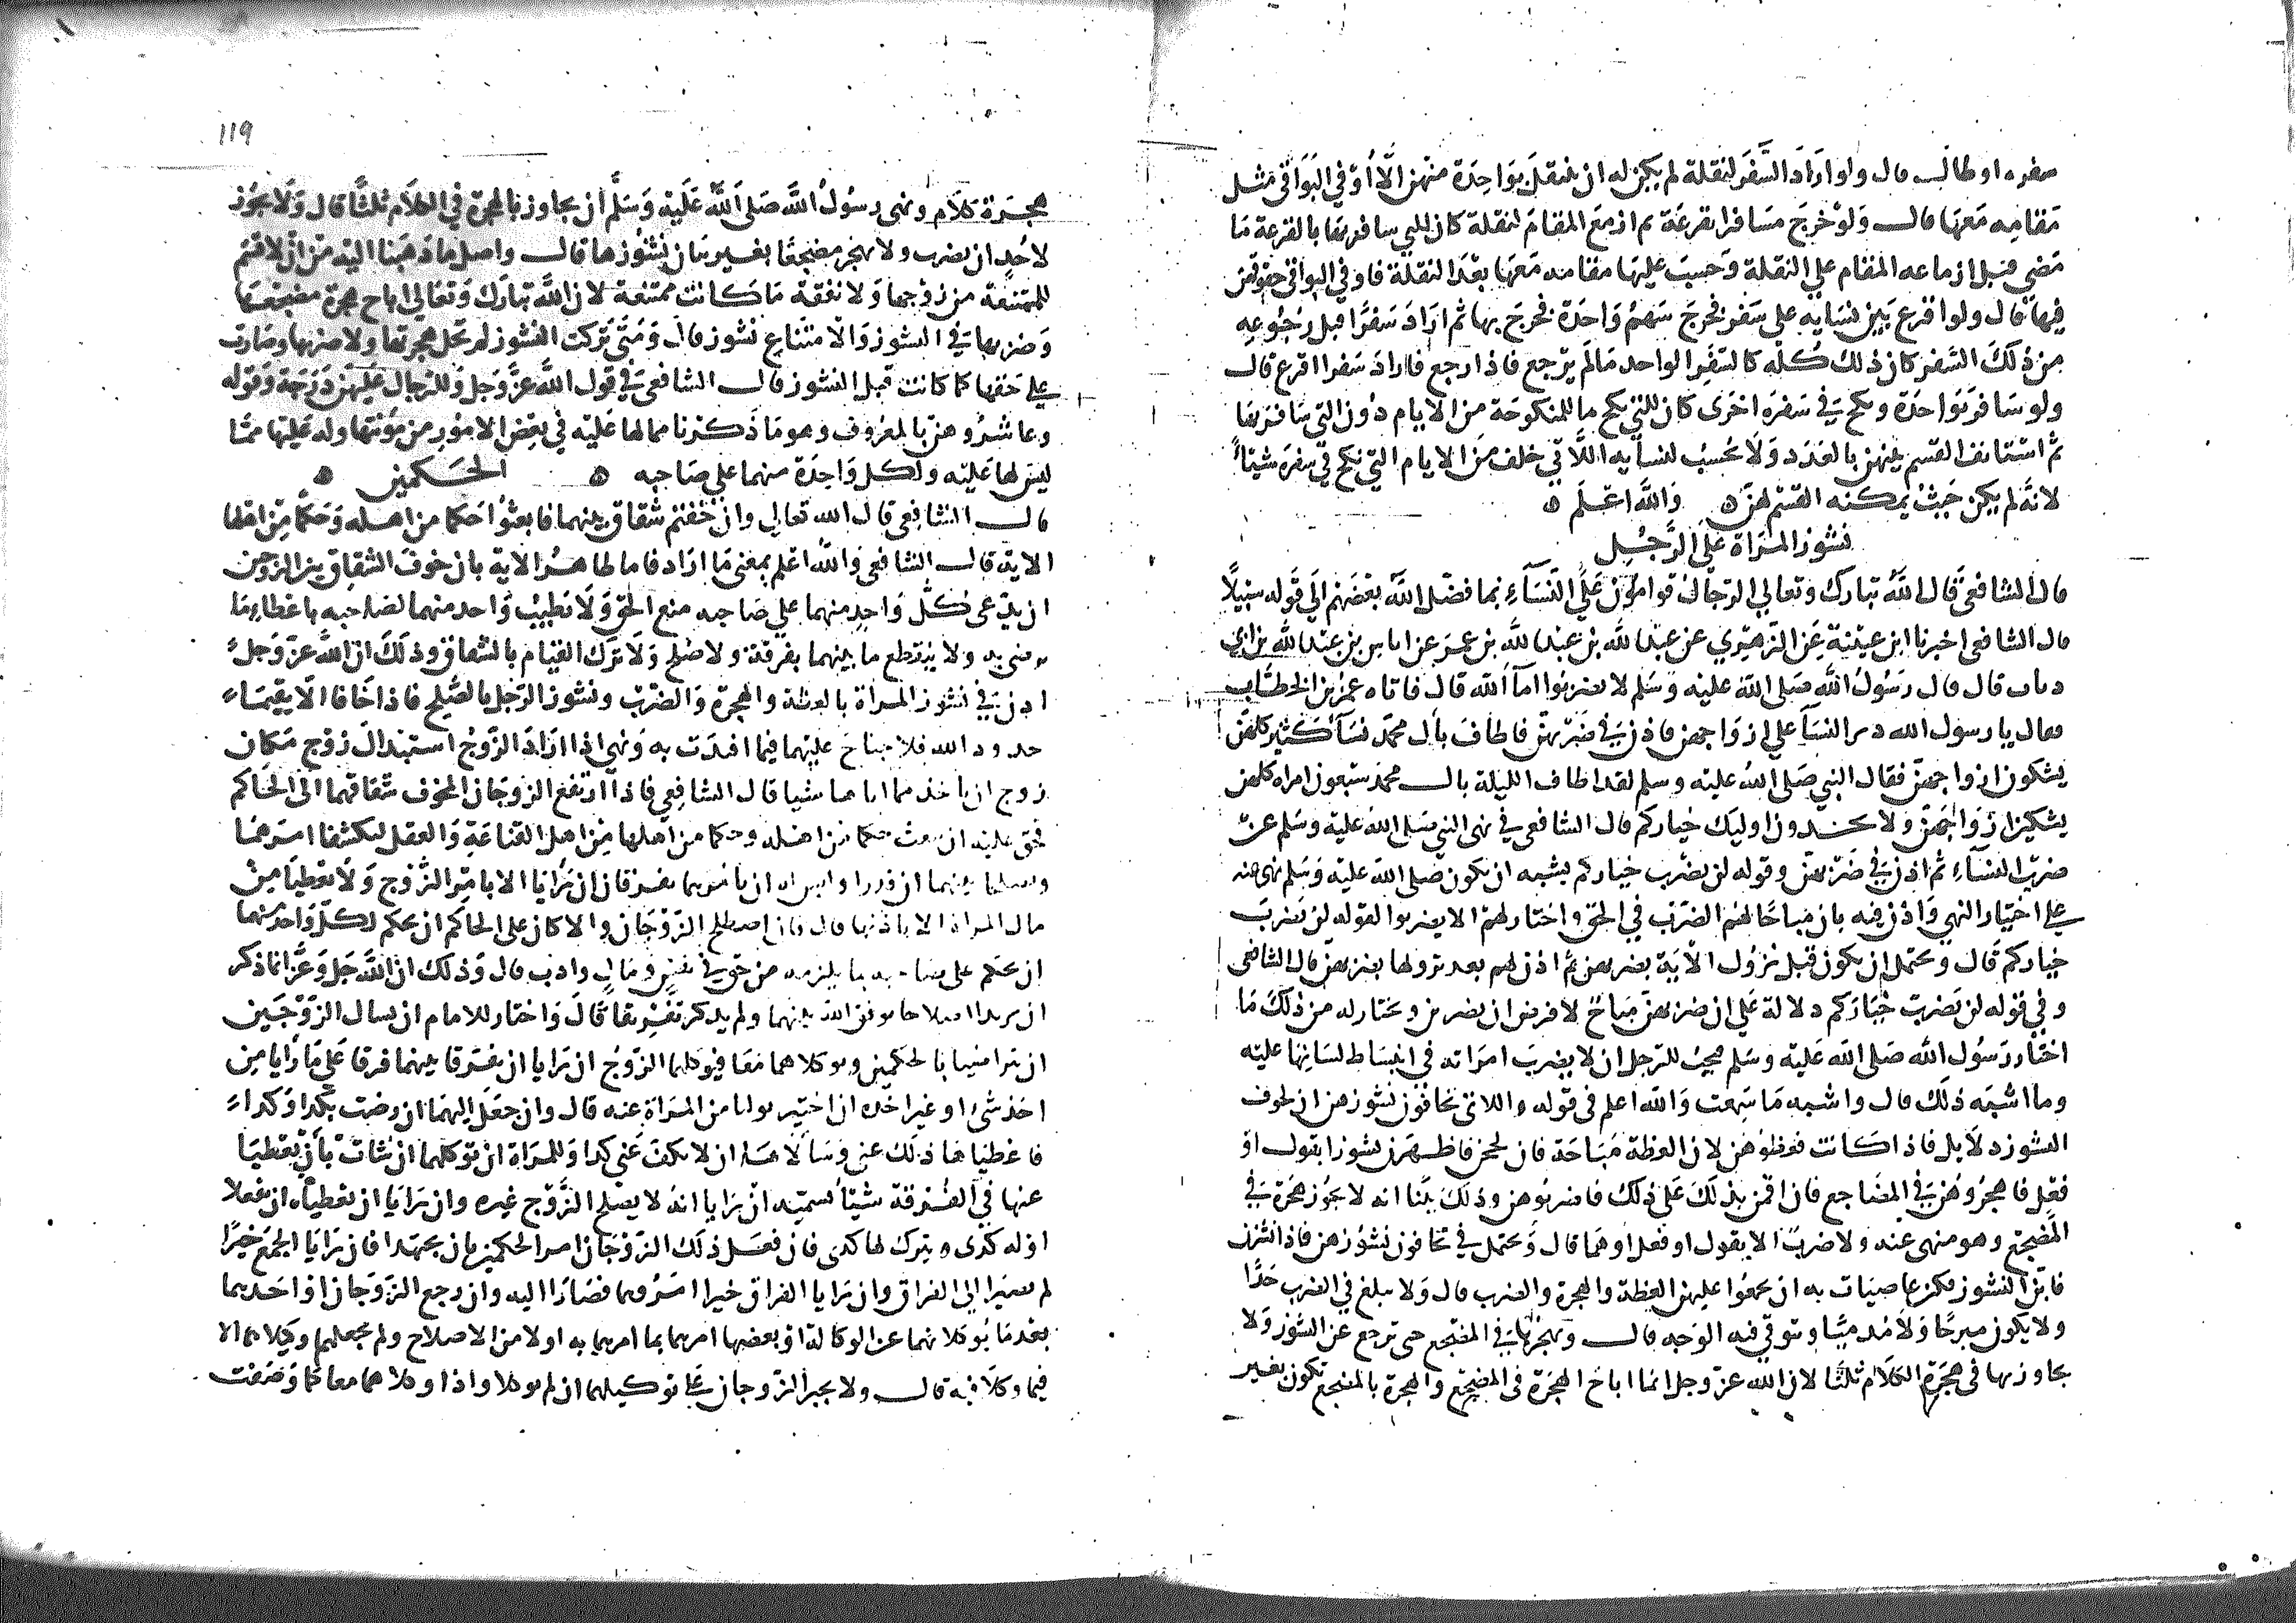 سفره او طال قال ولو اراد السفر لنقلة لم يكن له ان ينتقل بواحدة منهن الا اوفي البواقي مثل
مقامه معها قال ولو خرج مسافرا بقرعة ثم ازمع المقام لنقلة كان للتي سافر بها بالقرعة ما
مضى قبل ازماعه المقام على النقلة وحسب عليها مقامه معها بعد النقلة فاوفي البواقي حقوقهن
فيها قال ولو اقرع بين نسايه على سفر فخرج سهم واحدة فخرج بها ثم اراد سفرا قبل رجوعه
من ذلك السفر كان ذلك كله كالسفر الواحد ما لم يرجع فاذا رجع فاراد سفرا اقرع قال
ولو سافر بواحدة ونكح في سفره اخرى كان للتي نكح ما للمنكوحة من الايام دون التي سافر بها
ثم استانف القسم بينهن بالعدد ولا يحسب لنسايه اللاتي خلف من الايام التي نكح في سفره شيئا
لانه لم يكن حيث يمكنه القسم لهن ه والله اعلم ه
نشوز المراة على الرجل
قال الشافعي قال الله تبارك وتعالى الرجال قوامون على النساء بما فضل الله بعضهم الى قوله سبيلا
قال الشافعي اخبرنا ابن عيينة عن الزهري عن عبد الله بن عبد الله بن عمر عن اياس بن عبد الله بن ابي
ذباب قال قال رسول الله صلى الله عليه وسلم لا تضربوا اماء الله قال فاتاه عمر بن الخطاب
فقال يا رسول الله ذئر النساء على ازواجهن فاذن في ضربهن فاطاف بال محمد نساء كثير كلهن
يشكون ازواجهن فقال النبي صلى الله عليه وسلم لقد اطاف الليلة بال محمد سبعون امراه كلهن
يشكين ازواجهن ولا تجدون اوليك خياركم قال الشافعي في نهى النبي صلى الله عليه وسلم عن
ضرب النساء ثم اذن في ضربهن وقوله لن يضرب خياركم يشبه ان يكون صلى الله عليه وسلم نهى عنه
على اختيار النهي واذن فيه بان مباحا لهم الضرب في الحق واختار لهم الا يضربوا لقوله لن يضرب
خياركم قال ويحتمل ان يكون قبل نزول الاية بضربهن ثم اذن لهم بعد نزولها بضربهن قال الشافعي
وفي قوله لن يضرب خياركم دلالة على ان ضربهن مباح لا فرض ان يضربن ويختار له من ذلك ما
اختار رسول الله صلى الله عليه وسلم فيحب للرجل ان لا يضرب امراته في انبساط لسانها عليه
وما اشبه ذلك قال واشبه ما سمعت والله اعلم في قوله واللاتي تخافون نشوزهن ان لخوف
النشوز دلايل فاذا كانت فعظوهن لان العظة مباحة فان لججن فاظهرن نشوزا بقول او
فعل فاهجروهن في المضاجع فان اقمن بذلك على ذلك فاضربوهن وذلك بين انه لا يجوز هجرة في
المضجع وهو منهى عنه ولا ضرب الا بقول او فعل او هما قال ويحتمل في تخافون نشوزهن فاذا نشزن
فابن النشوز فكن عاصيات به ان تجمعوا عليهن العظة والهجرة والضرب قال ولا يبلغ في الضرب حدا
ولا يكون مبرحا ولا مدميا ويتوقى فيه الوجه قال ويهجرها في المضجع حتى ترجع عن النشوز ولا
يجاوز بها في هجرة الكلام ثلثا لان الله عز وجل انما اباح الهجرة في المضجع والهجرة بالمضجع تكون بغير
١١٩
هجرة كلام ونهى رسول الله صلى الله عليه وسلم ان يجاوز بالهجرة في الكلام ثلثا قال ولا يجوز
لاحد ان يضرب ولا يهجر مضجعا بغير بيان نشوزها قال واصل ما ذهبنا اليه من ان لا قسم
للممتنعة من زوجها ولا نفقة ما كانت ممتنعة لان الله تبارك وتعالى اباح هجرة مضجعها
وضربها في النشوز والامتناع نشوز قال ومتى تركت النشوز لم تحل هجرتها ولا ضربها وصارت
على حقها كما كانت قبل النشوز قال الشافعي في قول الله عز وجل وللرجال عليهن درجة وقوله
وعاشروهن بالمعروف وهو ما ذكرنا مما لها عليه في بعض الامور من مؤنتها وله عليها مما
ليس لها عليه ولكل واحدة منهما على صاحبه ه الحكمين ه
قال الشافعي قال الله تعالى وان خفتم شقاق بينهما فابعثوا حكما من اهله وحكما من اهلها
الاية قال الشافعي والله اعلم بمعنى ما اراد فاما ظاهر الاية بان خوف الشقاق بين الزوجين
ان يدعي كل واحد منهما على صاحبه منع الحق ولا يطيب واحد منهما لصاحبه باعطاء ما
يرضى به ولا ينقطع ما بينهما بفرقة ولا صلح ولا ترك القيام بالشقاق وذلك ان الله عز وجل
اذن في نشوز المراة بالعظة والهجرة والضرب ونشوز الرجل بالصلح فاذا خافا الا يقيما
حدود الله فلا جناح عليهما فيما افتدت به ونهى اذا اراد الزوج استبدال زوج مكان
زوج ان ياخذ مما اتاها شيا قال الشافعي فاذا ارتفع الزوجان المخوف شقاقهما الى الحاكم
فحق عليه ان يبعث حكما من اهله وحكما من اهلها من اهل القناعة والعقل ليكشفا امرهما
ويصلحا بينهما ان قدرا وليس له ان يامرهما يفرقان ان رايا الا بامر الزوج ولا يعطيا من
مال المراة الا باذنها قال فان اصطلح الزوجان والا كان على الحاكم ان يحكم لكل واحد منهما
ان يحكم على صاحبه بما يلزمه من حق في نفس ومال وادب قال وذلك ان الله جل وعز انما ذكر
ان يريدا اصلاحا يوفق الله بينهما ولم يذكر تفريقا قال واختار للامام ان يسال الزوجين
ان يتراضيا بالحكمين ويوكلاهما معا فيوكلهما الزوج ان رايا ان يفرقا بينهما فرقا على ما رايا من
اخذ شئ او غير اخذه ان اختير توليا من المراة عنه قال وان جعل اليهما ان رضت بكذا وكذا
فاعطياها ذلك عني وسالاها ان لا تكف عني كذا وللمراة ان توكلهما ان شات بان يعطيا
عنها في الفرقة شيئا تسميه ان رايا انه لا يصلح الزوج غيره وان رايا ان يعطياه ان يفعلا
او له كذى ويترك لها كذى فان فعل ذلك الزوجان امر الحكمين بان يجتهدا فان رايا الجمع خيرا
لم يصيرا الى الفراق وان رايا الفراق خيرا امرهما فصارا اليه وان رجع الزوجان او احدهما
بعد ما يوكلانهما عن الوكالة او بعضها امرهما بما امرهما به اولا من الاصلاح ولم يجعلهما وكيلا هما الا
فيما وكلا فيه قال ولا يجبر الزوجان على توكيلهما ان لم يوكلا واذا وكلاهما معا كما وصفت